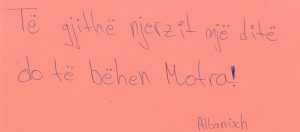 Të gjithë njerzit një ditë
do të bëhen Motra!
Albanisch